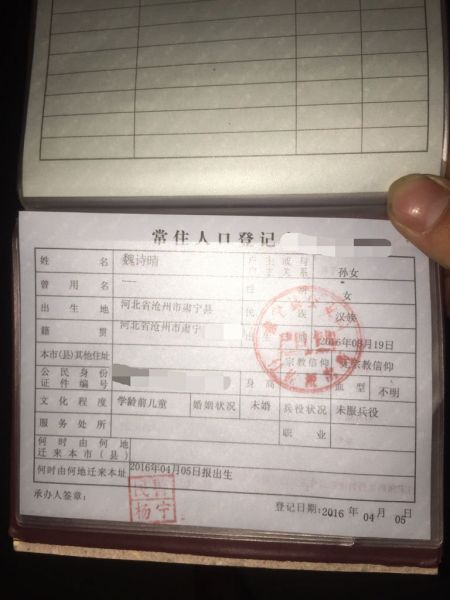 常住人口登记
姓 名 魏诗晴 户主或与户主关系 孙女
曾用名 — 性 女
出生地 河北省沧州市肃宁县 民族 汉族
籍贯 河北省沧州市肃宁县 2016年03月19日
本市(县)其他住址 宗教信仰 无宗教信仰
公民身份证件编号 身高 血型 不明
文化程度 学龄前儿童 婚姻状况 未婚 兵役状况 未服兵役
服务处所 职业
何时由何地迁来本市(县)
何时由何地迁来本址 2016年04月05日报出生
承办人签章: 杨宁 登记日期:2016年04月05日